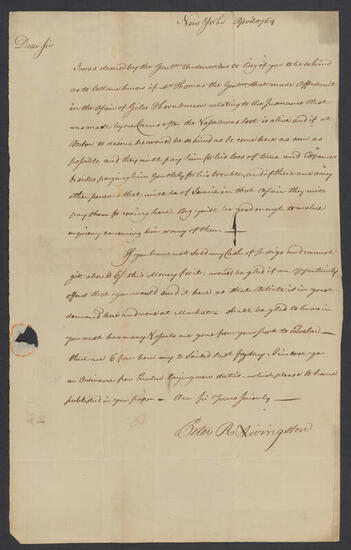 New York April 1764
Dear Sir
I was desired by the Gentn. Underwriters to Beg of you to be so kind
as to let me know if Mr. Thomas the Gentn. that made Affidavit
in the Affair of Giles Thornburrow relating to the Insurance that
was made by one after the Vessel was lost is alive and if at
Boston to desire he would be so kind as to come here as soon as
possible and they will pay him for his loss of time and Expences
besides paying him Genteely for his trouble, and if there are any
other persons that will be of Service in that Affair they will
pay them for coming here. Beg you'd be good enough to make
enquiry concerning him or any of them
If you have not Sold my Cask of Indigo and cannot
get above 6/ this Money for it. would be glad if an oppertunity
offers that you would send it here as that Article is in great
demand here and none at Market. Shall be glad to know in
your next how many Vessels are gone from your port to Quebec
there are 6 from here my 2 Sailed last Fryday. I inclose you
an Ordinance from Quebec laying new duties which please to have
published in your paper — Am Sir Yours Sincerely —
Peter R Livingston